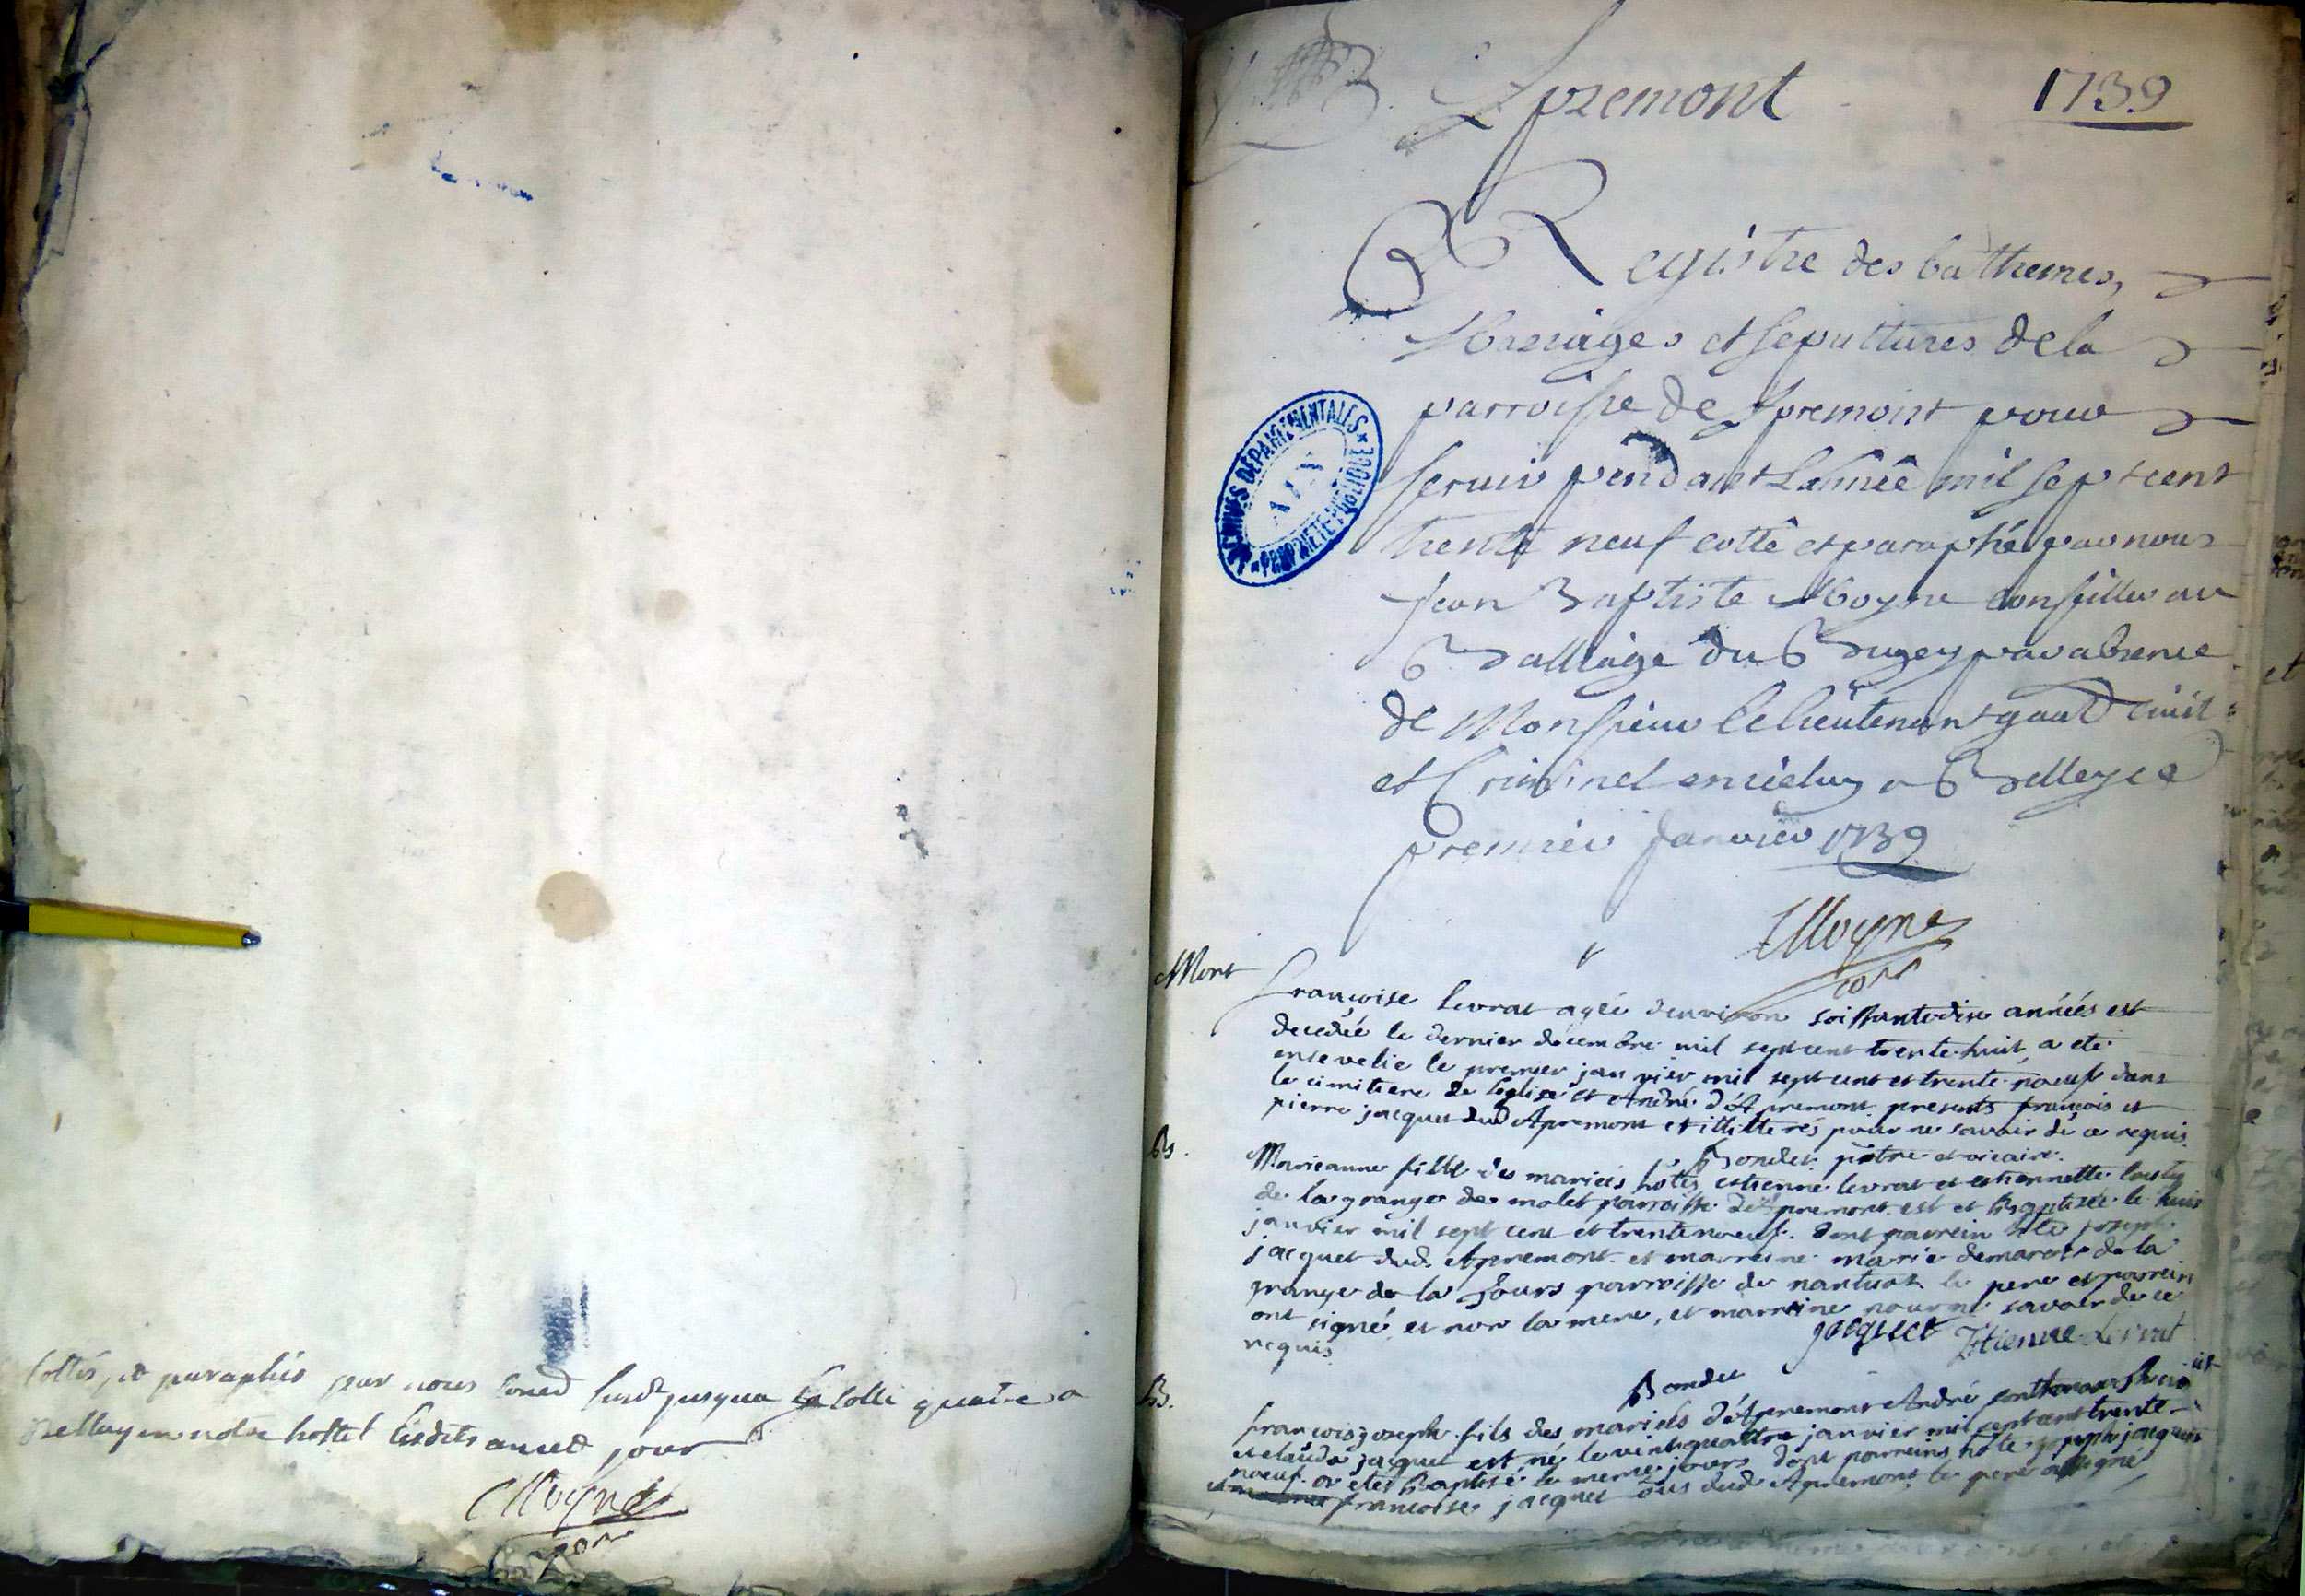 Cottés, et paraphés par nous Conser susdt jusqua la cotte quatre a
Belley en notre hostel lesdits an et jour
Moyne
Apremont 1739
Registre des bathemes,
Mariages et sepultures de la
parroisse de Apremont pour
servir pendant Lannéé mil sept cent
trente neuf cotté et paraphé par nous
Jean Baptiste Moyne Conseiller au
Balliage du Bugey par absence
de Monsieur le lieutenant gnal civil
et Criminel en iceluy a Belley ce
premier Janvier 1739
Moyne
ARCHIVES DÉPARTEMENTALES
AIN
PROPRIÉTÉ PUBLIQUE
Mort
françoise levrat agéé denviron soissantedise annéés est
decedéé le dernier décembre mil sept cent trente huit a eté
ensevelie le premier janvier mil sept cent et trente noeuf dans
le cimitiere de leglise st André d'Apremont presents françois et
pierre jacquet dud Apremont et illitterés pour ne savoir de ce requis
Bondet pretre et vicaire.
B.
Marieanne fille des mariés estienne levrat et estiennette
de la grange de molet parroisse d'Apremont est et Baptiséé le huit
janvier mil sept cent et trente noeuf. dont parrein joseph
jacquet dud. Apremont et marreine marie de la
grange de la parroisse de nantuat le pere et parrein
ont signé et non la mere, et marreine pour ne savoir de ce
requis
jacquet Etienne Levrat
Bondet
B.
françois joseph fils des mariés d'Apremont André
et claude jacquet est né le vint quattre janvier mil sept cent trente
noeuf. a eté Baptisé le meme jour dont parreins joseph jacquet
et françoise jacquet tous dud Apremont le pere a signé